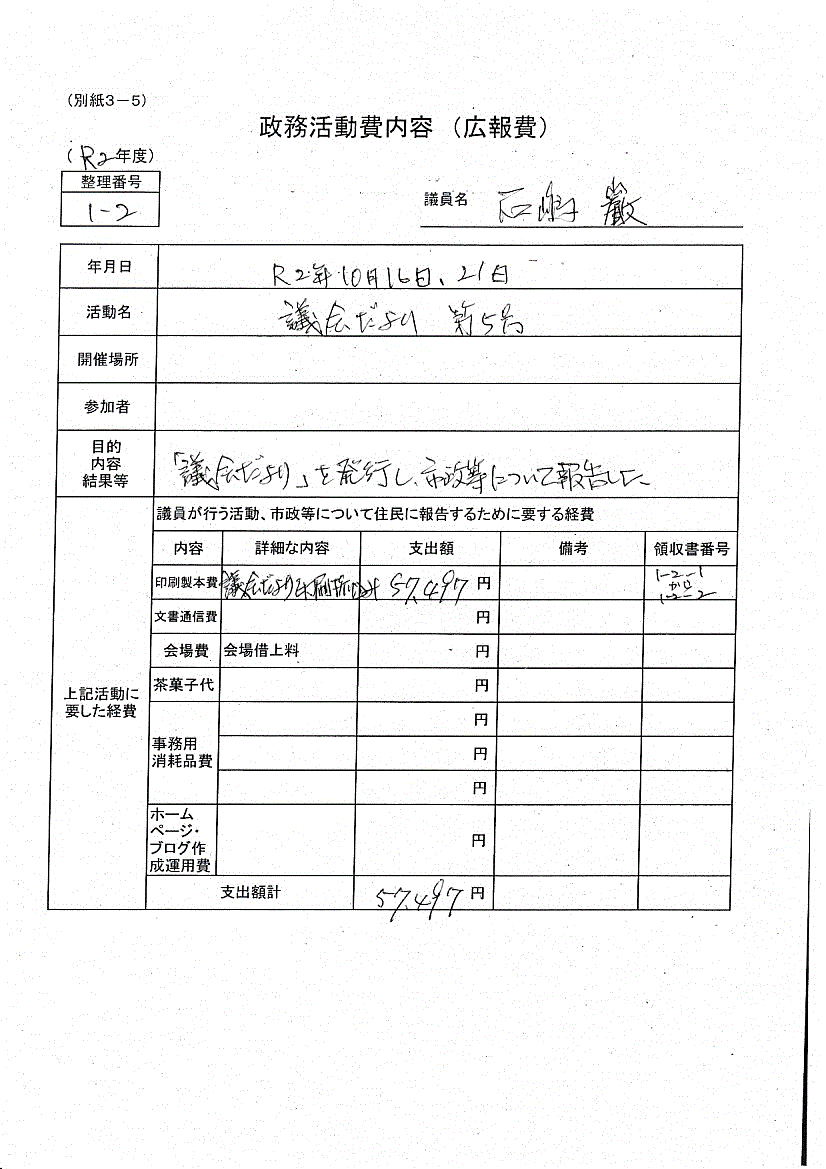 （別紙３－５）
政務活動費内容 （広報費）
（R2年度）
整理番号
1-2
議員名 巌
年月日 R2年10月16日、21日
活動名 議会だより 第5号
開催場所
参加者
目的
内容
結果等
「議会だより」を発行し、市政等について報告した
議員が行う活動、市政等について住民に報告するために要する経費
内容 詳細な内容 支出額 備考 領収書番号
印刷製本費 議会だより印刷 57,497 円 1-2-1
から
1-2-2
文書通信費 円
会場費 会場借上料 円
茶菓子代 円
上記活動に
要した経費
円
事務用
消耗品費
円
円
ホーム
ページ・
ブログ作
成運用費
円
支出額計 57,497 円